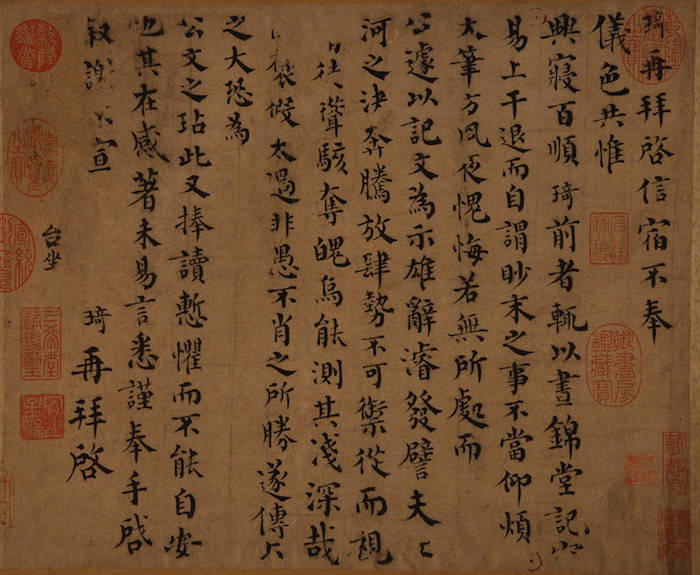 琦再拜啓信宿不奉
儀色共惟
興寢百順琦前者輒以晝錦堂記容
易上干退而自謂眇末之事不當仰煩
大筆方夙夜愧悔若無所處而
公遽以記文為示雄辭濬發譬夫
河之決奔騰放肆勢不可禦從而視
徒聳駭奪魄烏能測其淺深哉
褒假太過非愚不肖之所勝遂傳
之大恐為
公文之玷此又捧讀慙懼而不能自安
也其在感著未易言悉謹奉手啓
敘謝不宣
琦再拜啓
台坐